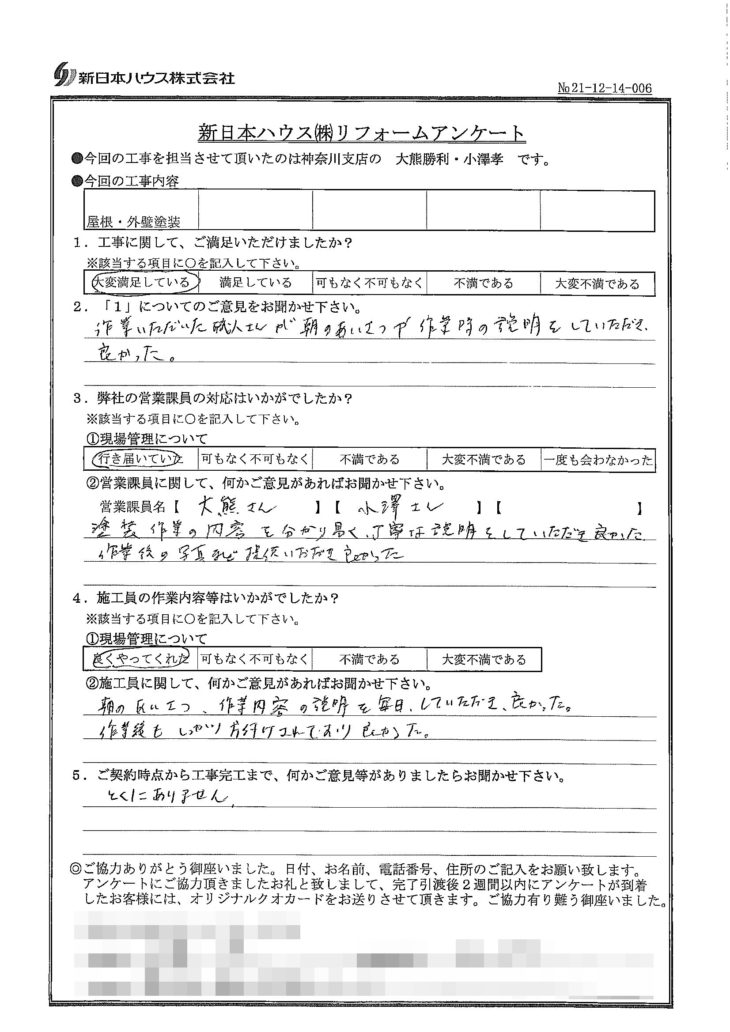 新日本ハウス株式会社
№21-12-14-006
新日本ハウス㈱リフォームアンケート
●今回の工事を担当させて頂いたのは神奈川支店の 大熊勝利・小澤孝 です。
●今回の工事内容
屋根・外壁塗装
1．工事に関して、ご満足いただけましたか？
※該当する項目に〇を記入して下さい。
大変満足している 満足している 可もなく不可もなく 不満である 大変不満である
2．「1」についてのご意見をお聞かせ下さい。
作業いただいた職人さんが朝のあいさつや作業時の説明をしていただき、
良かった。
3．弊社の営業課員の対応はいかがでしたか？
※該当する項目に〇を記入して下さい。
①現場管理について
行き届いていた 可もなく不可もなく 不満である 大変不満である 一度も会わなかった
②営業課員に関して、何かご意見があればお聞かせ下さい。
営業課員名【 大熊さん 】【 小澤さん 】【 】
塗装作業の内容を分かり易く、丁寧な説明をしていただき良かった
作業後の写真など提供いただき良かった
4．施工員の作業内容等はいかがでしたか？
※該当する項目に〇を記入して下さい。
①現場管理について
良くやってくれた 可もなく不可もなく 不満である 大変不満である
②施工員に関して、何かご意見があればお聞かせ下さい。
朝のあいさつ、作業内容の説明を毎日、していただき、良かった。
作業後もしっかりお片付けされており良かった。
5．ご契約時点から工事完工まで、何かご意見等がありましたらお聞かせ下さい。
とくにありません
◎ご協力ありがとう御座いました。日付、お名前、電話番号、住所のご記入をお願い致します。
アンケートにご協力頂きましたお礼と致しまして、完了引渡後2週間以内にアンケートが到着
したお客様には、オリジナルクオカードをお送りさせて頂きます。ご協力有り難う御座いました。